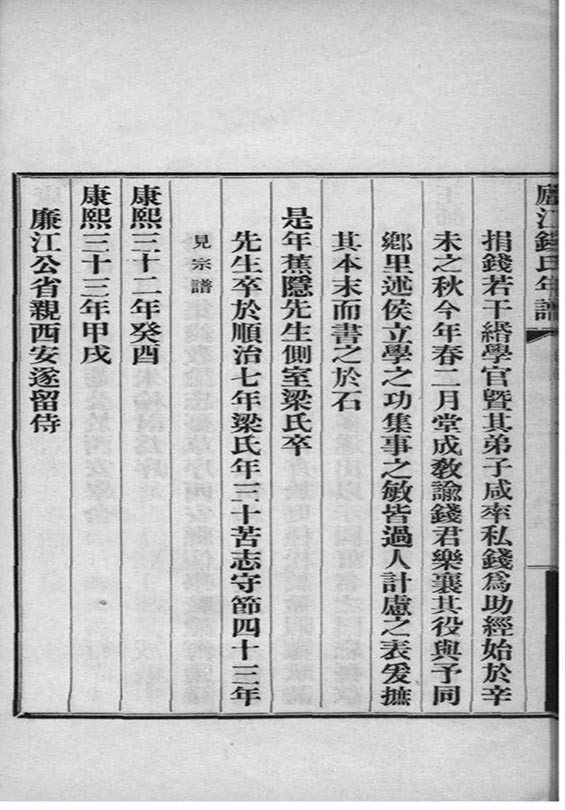 廬江錢氏年譜
捐錢若干緡學官曁其弟子咸率私錢爲助經始於辛
未之秋今年春二月堂成敎諭錢君樂襄其役與予同
鄉里述侯立學之功集事之敏皆過人計慮之表爰摭
其本末而書之於石
是年蕉隱先生側室梁氏卒
先生卒於順治七年梁氏年三十苦志守節四十三年
見宗譜
康熙三十二年癸酉
康熙三十三年甲戌
廉江公省親西安遂留侍